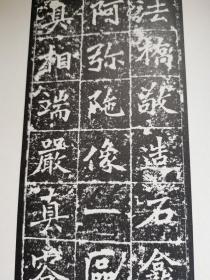 法橋敬造石龕
阿弥陁像一區
真相端嚴真